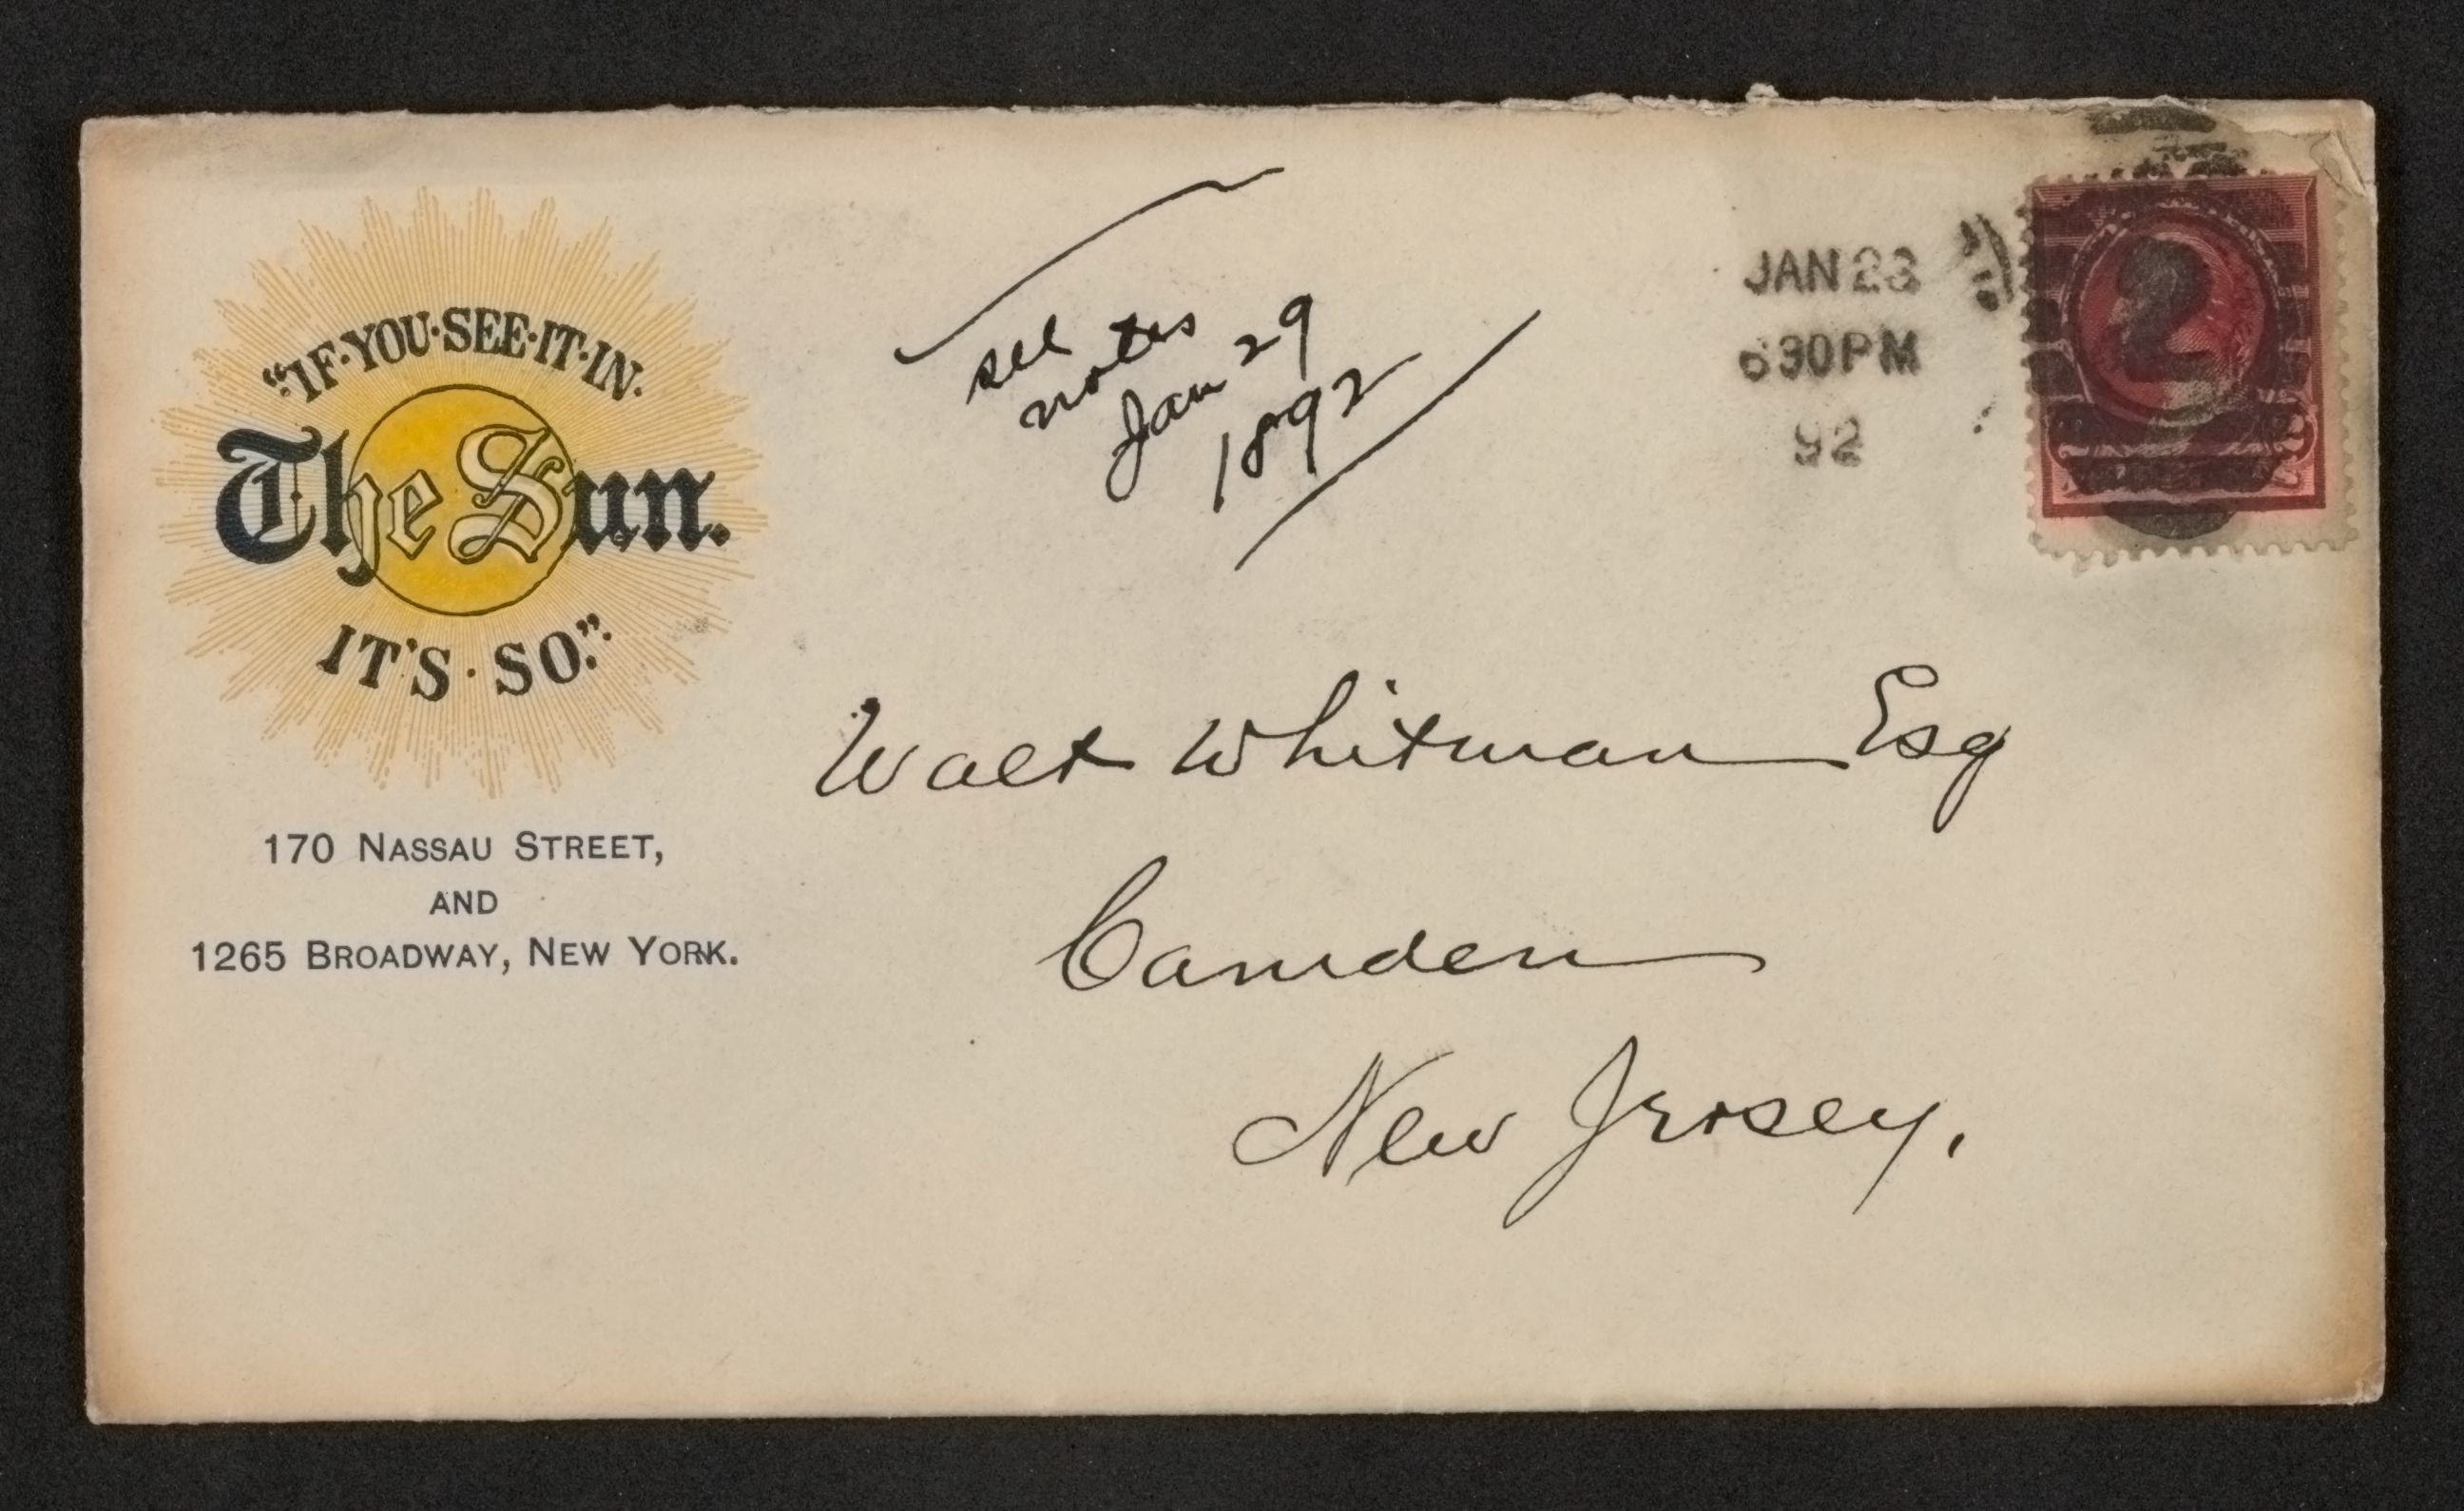 "IF·YOU·SEE·IT·IN·
The Sun.
IT'S·SO."
170 NASSAU STREET,
AND
1265 BROADWAY, NEW YORK.
see
notes
Jan 29
1892
JAN 28
630PM
92
2
Walt Whitman Esq
Camden
New Jersey.